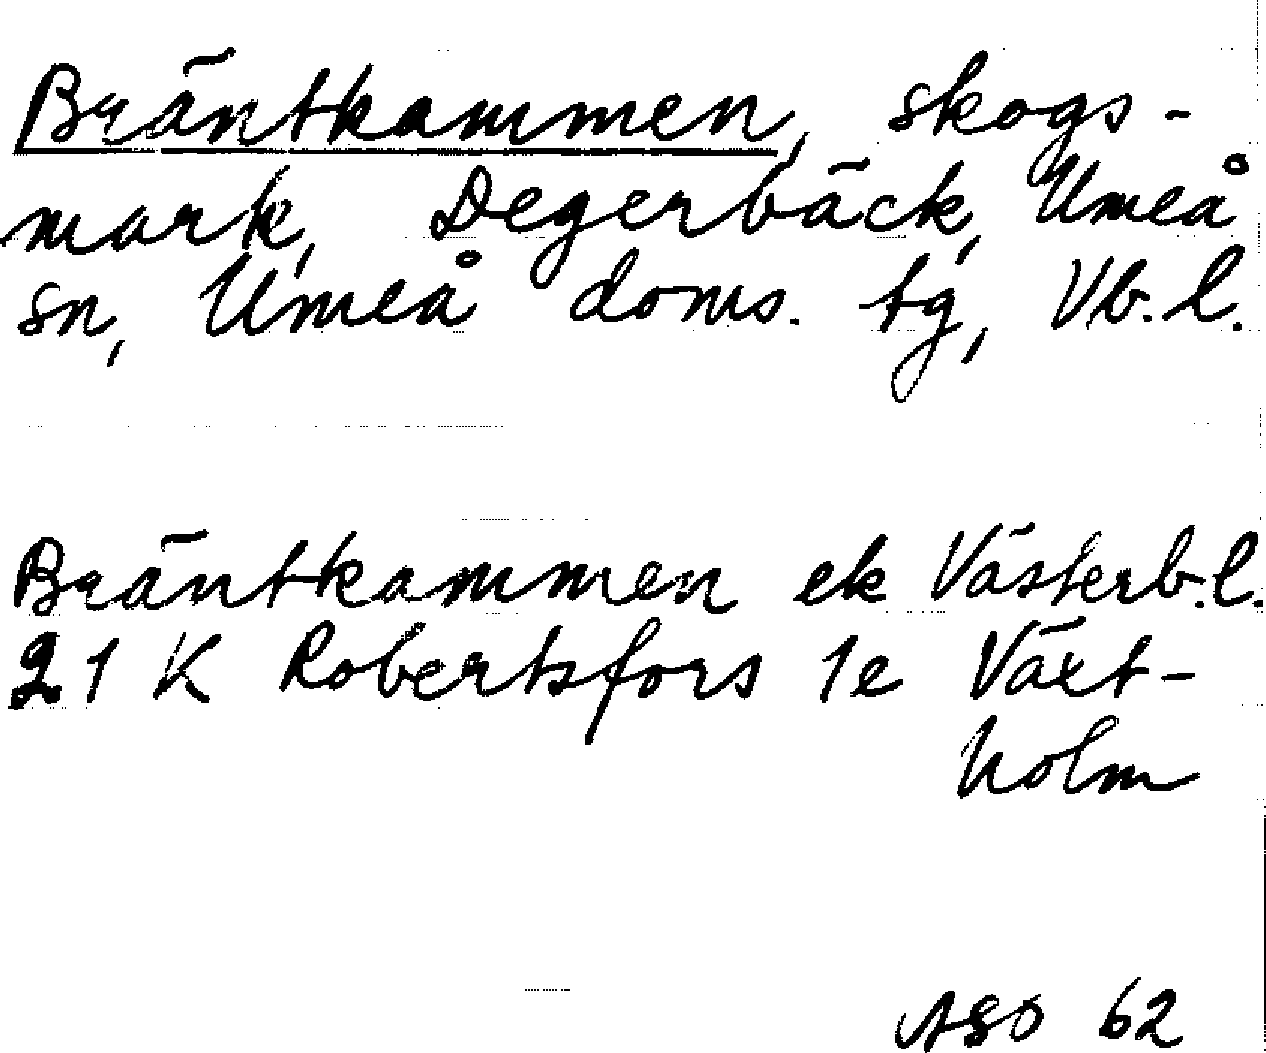 Bräntkammen, skogs-
mark, Degerbäck, Umeå
sn, Umeå doms. tg, Vb.l.
Bräntkammen ek Västerb.l.
21 K Robertsfors 1e Växt-
holm
ASO 62